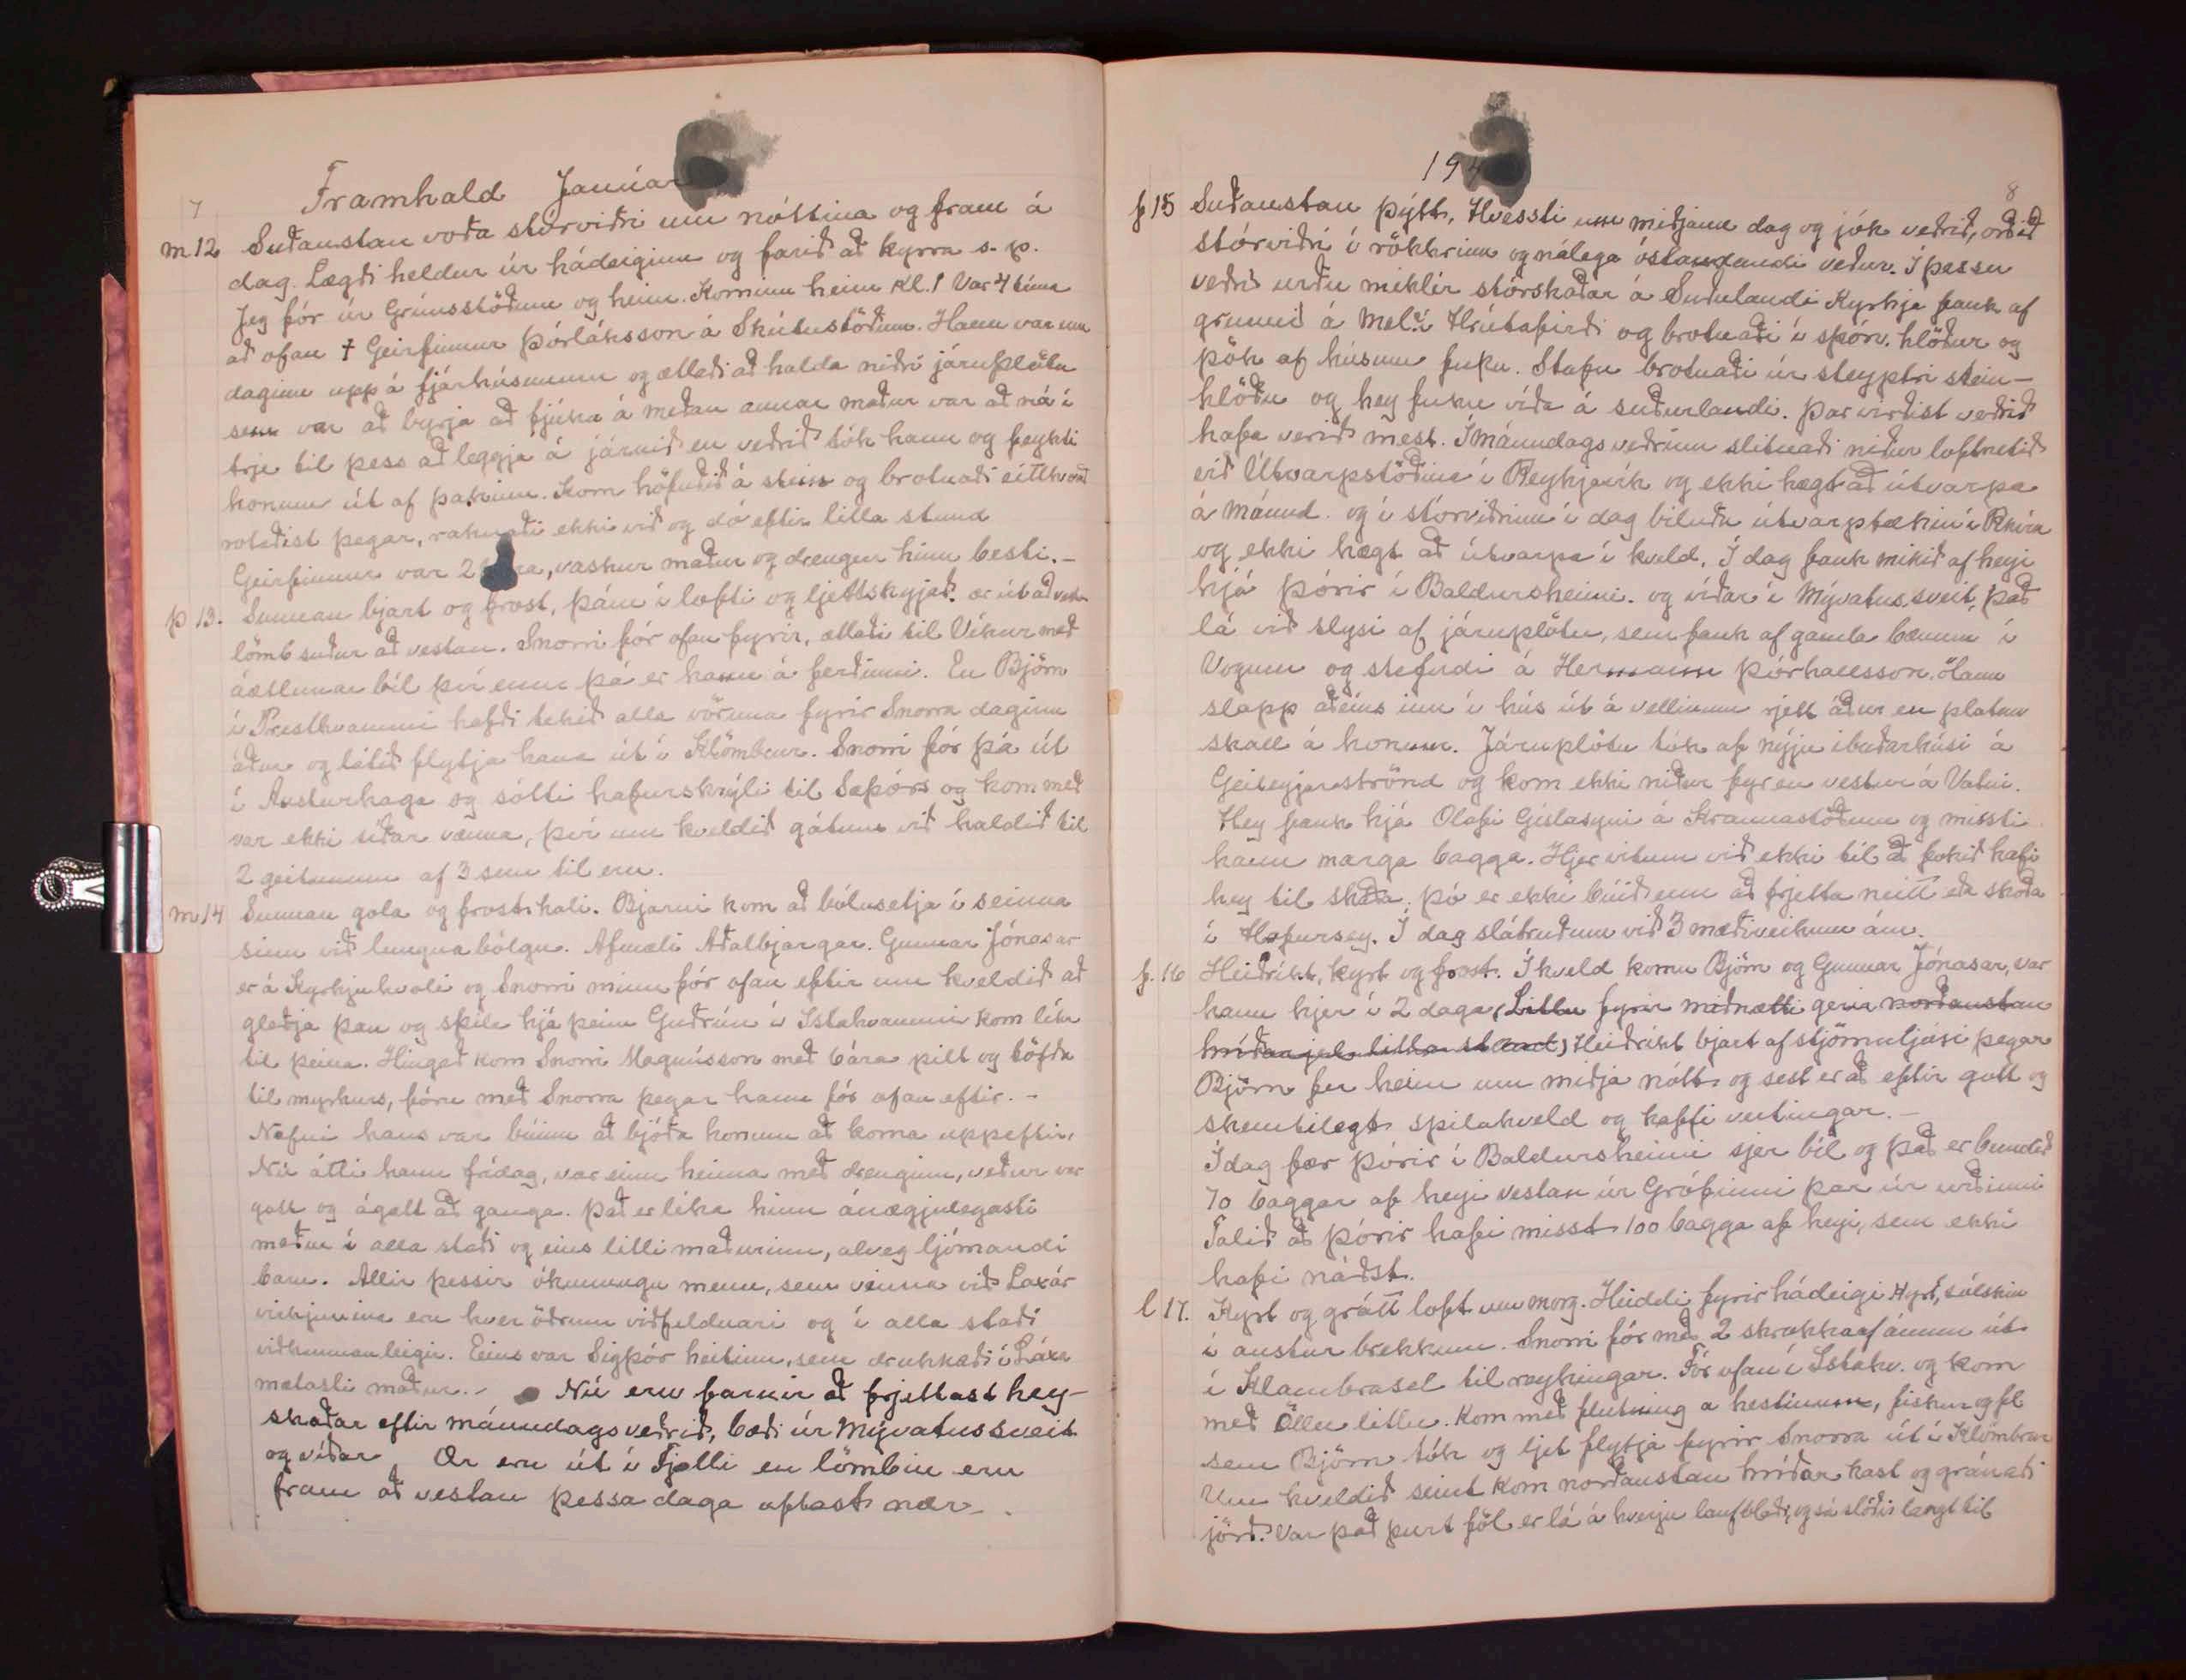 7
Framhald Janúar
m 12 Suðaustan voða stórviðri um nóttina og fram á
dag. Lægði heldur úr hádeiginu og farið að kyrra s. p.
Jeg fór úr Grímsstöðum og heim. Kominn heim kl. 1 Var 4 tíma
að ofan † Geirfinnur Þórláksson á Skútustöðum. Hann var um
daginn upp á fjárhúsunum og ætlaði að halda niðri járnplötu
sem var að byrja að fjúka á meðan annar maður var að ná í
trje til þess að leggja á járnið en veðrið tók hann og feykti
honum út af þakinu. Kom höfuðið á stein og brotnaði eitthvað
rotaðist þegar, raknaði ekki við og dó eftir litla stund
Geirfinnur var 2 ra, vaskur maður og drengur hinn besti. -
þ 13. Sunnan bjart og frost, þám í lofti og ljettskyjað. ær út að vest.
lömb suður að vestan. Snorri fór ofan fyrir, ætlaði til Víkur með
áætlunar bíl því enn þá er hann á ferðinni. En Björn
í Presthvammi hafði tekið alla vöruna fyrir Snorra daginn
áður og látið flytja hana út í Klömbrur. Snorri fór þá út
í Austurhaga og sótti hafurskrýli til Saþórs og kom með
var ekki síðar vænna, því um kveldið gátum við haldið til
2 geitunum af 3 sem til eru.
m 14 Sunnan gola og frostkali. Bjarni kom að bólusetja í seinna
sinn við lungnabólgu. Afmæli Aðalbjargar. Gunnar Jónasar
er á Kyrkjuhvoli og Snorri minn fór ofan eftir um kveldið að
gleðja þau og spila hjá þeim Guðrún í Ystahvammi kom líka
til þeirra. Hingað kom Snorri Magnússon með 6 ára pilt og töfðu
til myrkurs, fóru með Snorra þegar hann fór ofan eftir. -
Nafni hans var búinn að bjóða honum að koma uppeftir,
Nú átti hann frídag, var einn heima með drenginn, veður var
gott og ágætt að ganga. Það er líka hinn ánægjulegasti
maður í alla staði og eins litli maðurinn, alveg ljómandi
barn. Allir þessir ókunnugu menn, sem vinna við Laxár
virkjunina eru hver öðrum viðfeldnari og í alla staði
viðkunnanlegir. Eins var Sigþór heitinn, sem drukknaði í Laxá
mætasti maður. - Nú eru farnir að frjettast hey-
skaðar eftir mánudagsveðrið, bæði úr Mývatnssveit
og víðar Ær eru út í Fjalli en lömbin eru
fram að vestan þessa daga oftast nær. .
194
8
f 15 Suðaustan þýtt, Hvessti um miðjann dag og jók veðrið, orðið
stórviðri í rökkrinu og nálega óstandandi veður. Í þessu
veðri urðu miklir stórskaðar á Suðulandi Kyrkja fauk af
grunni á Mel í Hrútafirði og brotnaði í spón. hlöður og
þök af húsum fuku. Stafn brotnaði úr steyptri stein-
hlöðu og hey fuku víða á suðurlandi. Þar virðist veðrið
hafa verið mest. Í mánudagsveðrinu slitnaði niður loftnetið
við Útvarpstöðina í Reykjavík og ekki hægt að útvarpa
á mánud. og í stórviðrinu í dag biluðu útvarptækin í Rvíra
og ekki hægt að útvarpa í kveld. Í dag fauk mikið af heyi
hjá Þórir í Baldursheimi. og víðar í Mývatnssveit, það
lá við slysi af járnplötu, sem fauk af gamla bænum í
Vogum og stefndi á Hermann Þórhallsson. Hann
slapp aðeins inn í hús út á vellinum rjett áður en platan
skall á honum. Járnplötu tók af nýju íbúðarhúsi á
Geiteyjarströnd og kom ekki niður fyr en vestur á Vatni.
Hey fauk hjá Olafi Gíslasyni á Kraunastöðum og missti
hann marga bagga. Hjer vitum við ekki til að fokið hafi
hey til skaða, þó er ekki búið enn að frjetta neitt eða skoða
í Hafursey. Í dag slátruðum við 3 mæðiveikum ám.
f. 16 Heiðríkt, kyrt og frost. Í kveld komu Björn og Gunnar Jónasar, var
hann hjer í 2 daga, (Litlu fyrir miðnætti gerir norðaustan
hríðarjel litla stund) Heiðríkt bjart af stjörnuljósi þegar
Björn fer heim um miðja nótt og sest er að eftir gott og
skemtilegt spilakveld og kaffi veitingar. -
Í dag fær Þórir í Baldursheimi sjer bíl og það er bundið
70 baggar af heyi vestan úr Grófinni þar úr urðinni
Talið að Þórir hafi misst 100 bagga af heyi, sem ekki
hafi náðst.
l 17. Kyrt og grátt loft um morg. Heiddi fyrir hádeigi Kyrt, sólskin
í austur brekkum. Snorri fór með 2 skrokka af ánum út
í Klambrasel til reykingar. Fór ofan í Ystahv. og kom
með Öllu litlu. Kom með flutning a hestinum, fiskur og fl
sem Björn tók og ljet flytja fyrir Snorra út í Klömbrur
Um kveldið seint kom norðaustan hríðar kast og gránaði
jörð. Var það þurt föl er lá á hverju laufblaði, og sá slóðir langt til